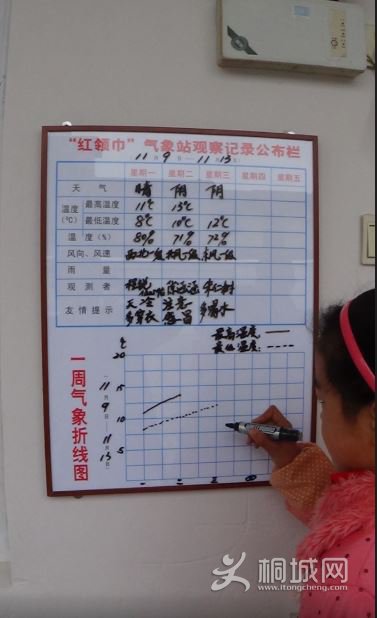 "红领巾"气象站观察记录公布栏
11月9日—11月13日
星期一 星期二 星期三 星期四 星期五
天气 晴 阴 阴
温度(℃) 最高温度 11℃ 13℃
最低温度 8℃ 10℃ 12℃
湿度(%) 80% 71% 72%
风向、风速
雨量
观测者
友情提示 天冷多穿衣 注意感冒 多喝水
最高温度: ——
最低温度: ----
一周气象折线图
11月9日
11月13日
℃
20
15
10
5
一 二 三 四
桐城网
www.itongcheng.com